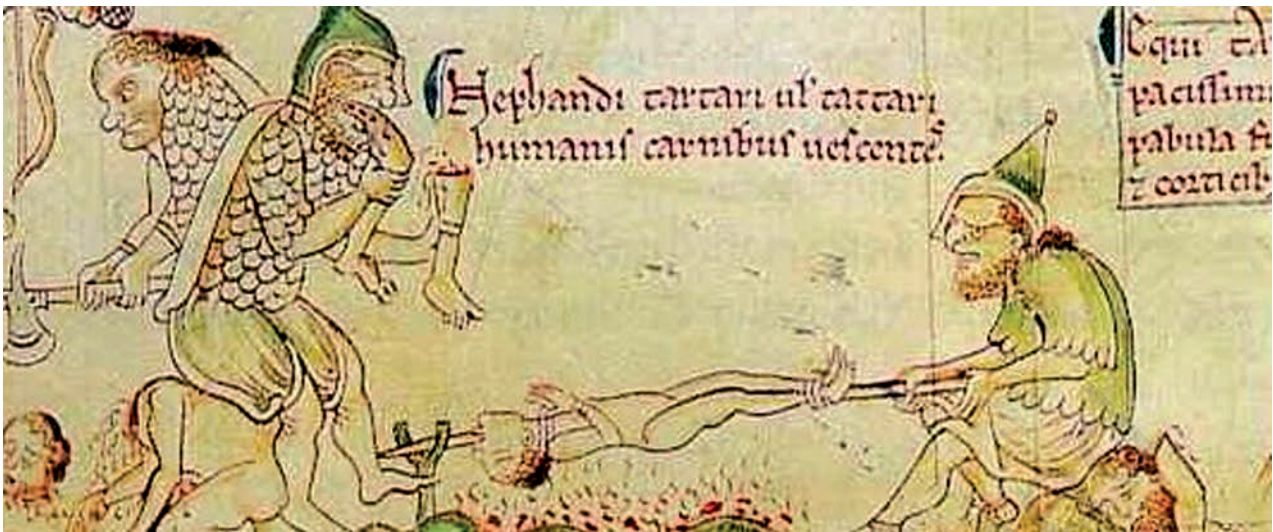 Nephandi tartari ul' tattari
humanis carnibus uescentes.
Equi
pacissimi
pabula
⁊ corticib